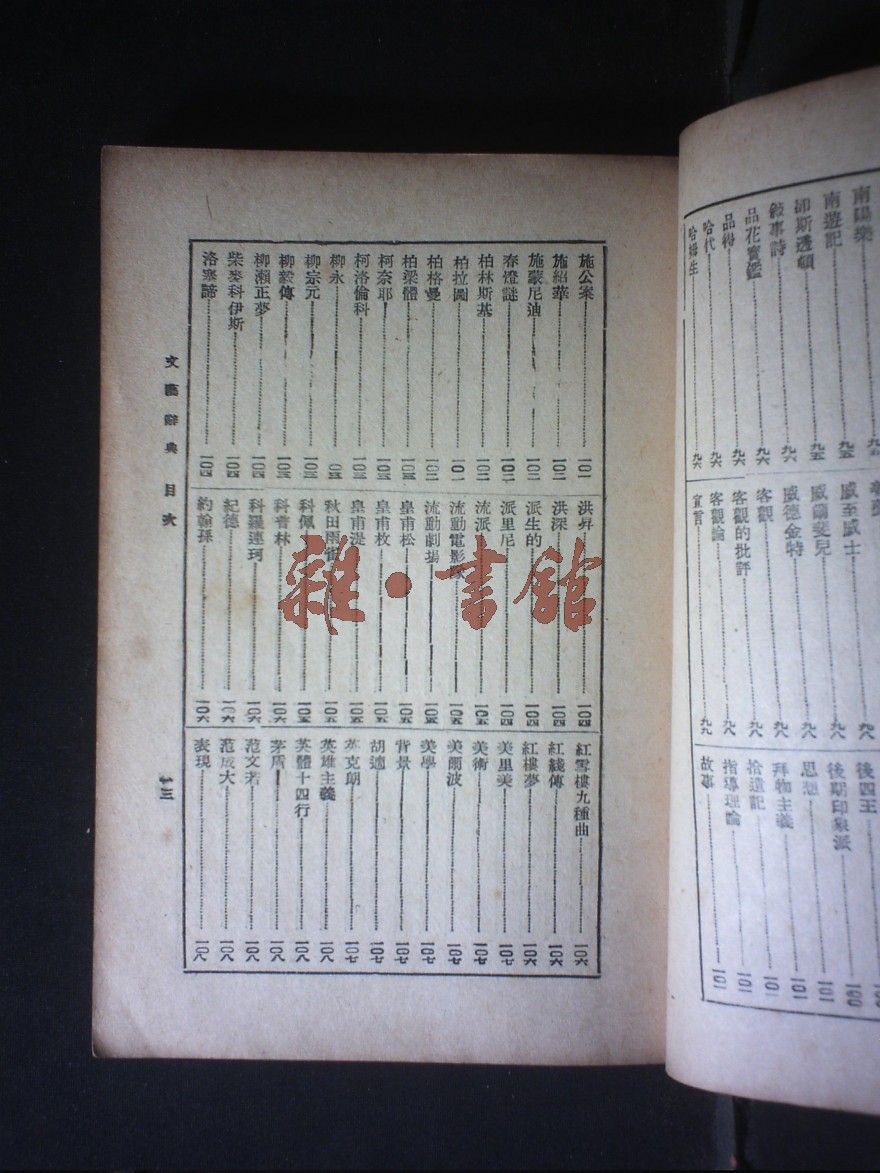 南陽樂
南遊記……九五
卸斯透頓……九五
敍事詩……九六
品花寶鑑……九六
品梅……九六
哈代……九六
哈姆生……九六
威至威士……九八
威爾斐兒……九八
威德金特……九八
客觀……九八
客觀的批評……九八
客觀論……九八
宣言……九九
後四王……一〇〇
後期印象派……一〇〇
思想……一〇一
拜物主義……一〇一
拾遺記……一〇一
指導理論……一〇一
故事……一〇一
施公案……一〇一
施紹華……一〇二
施蒙尼迪……一〇二
春燈謎……一〇二
柏林斯基……一〇二
柏拉圖……一〇二
柏格曼……一〇二
柏梁體……一〇三
柯奈耶……一〇三
柯洛倫科……一〇三
柳永……一〇三
柳宗元……一〇三
柳毅傳……一〇三
柳瀨正夢……一〇四
柴麥科伊斯……一〇四
洛塞諦……一〇四
洪昇……一〇四
洪深……一〇四
派生的……一〇四
派里尼……一〇四
流派……一〇五
流動電影隊……一〇五
流動劇場……一〇五
皇甫松……一〇五
皇甫枚……一〇五
皇甫湜……一〇五
秋田雨雀……一〇五
科佩……一〇五
科普林……一〇六
科羅連珂……一〇六
紀德……一〇六
約翰孫……一〇六
紅雪樓九種曲……一〇六
紅綫傳……一〇六
紅樓夢……一〇六
美里美……一〇七
美術……一〇七
美爾波……一〇七
美學……一〇七
背景……一〇七
胡適……一〇七
英克朗……一〇七
英雄主義……一〇八
英體十四行……一〇八
茅盾……一〇八
范文若……一〇八
范成大……一〇八
表現……一〇八
文藝辭典 目次
十三
雜·書館